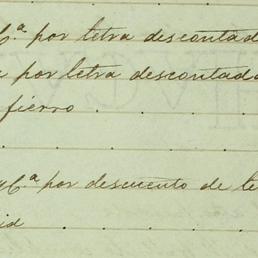 C.ª por letra descontad
por letra descontad
fierro
y C.ª por descuento de le
id